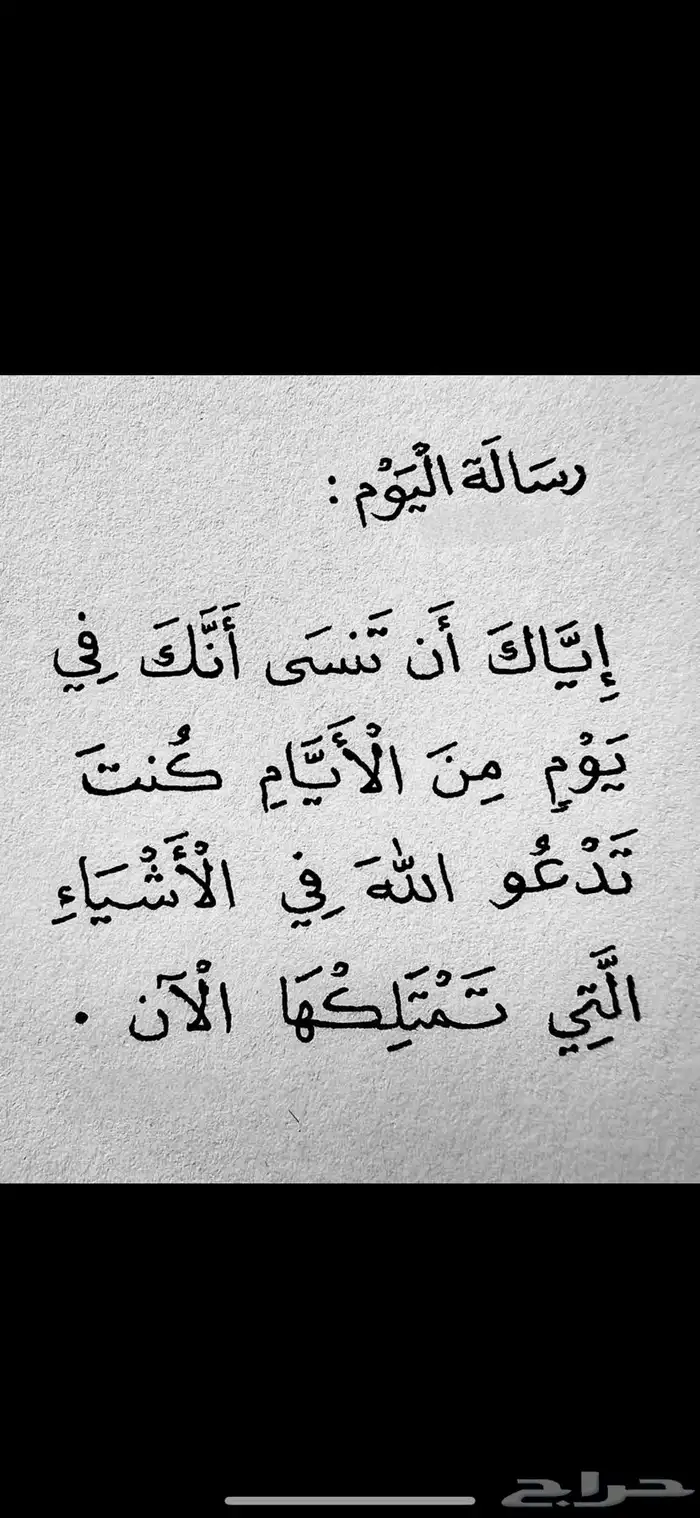 رسَالَة الْيَوْم :
إِيَّاكَ أَن تَنسَى أَنَّكَ فِي
يَوْمٍ مِنَ الْأَيَّامِ كُنتَ
تَدْعُو اللهَ فِي الْأَشْيَاءِ
الَّتِي تَمْتَلِكْهَا الْآن .
حراج